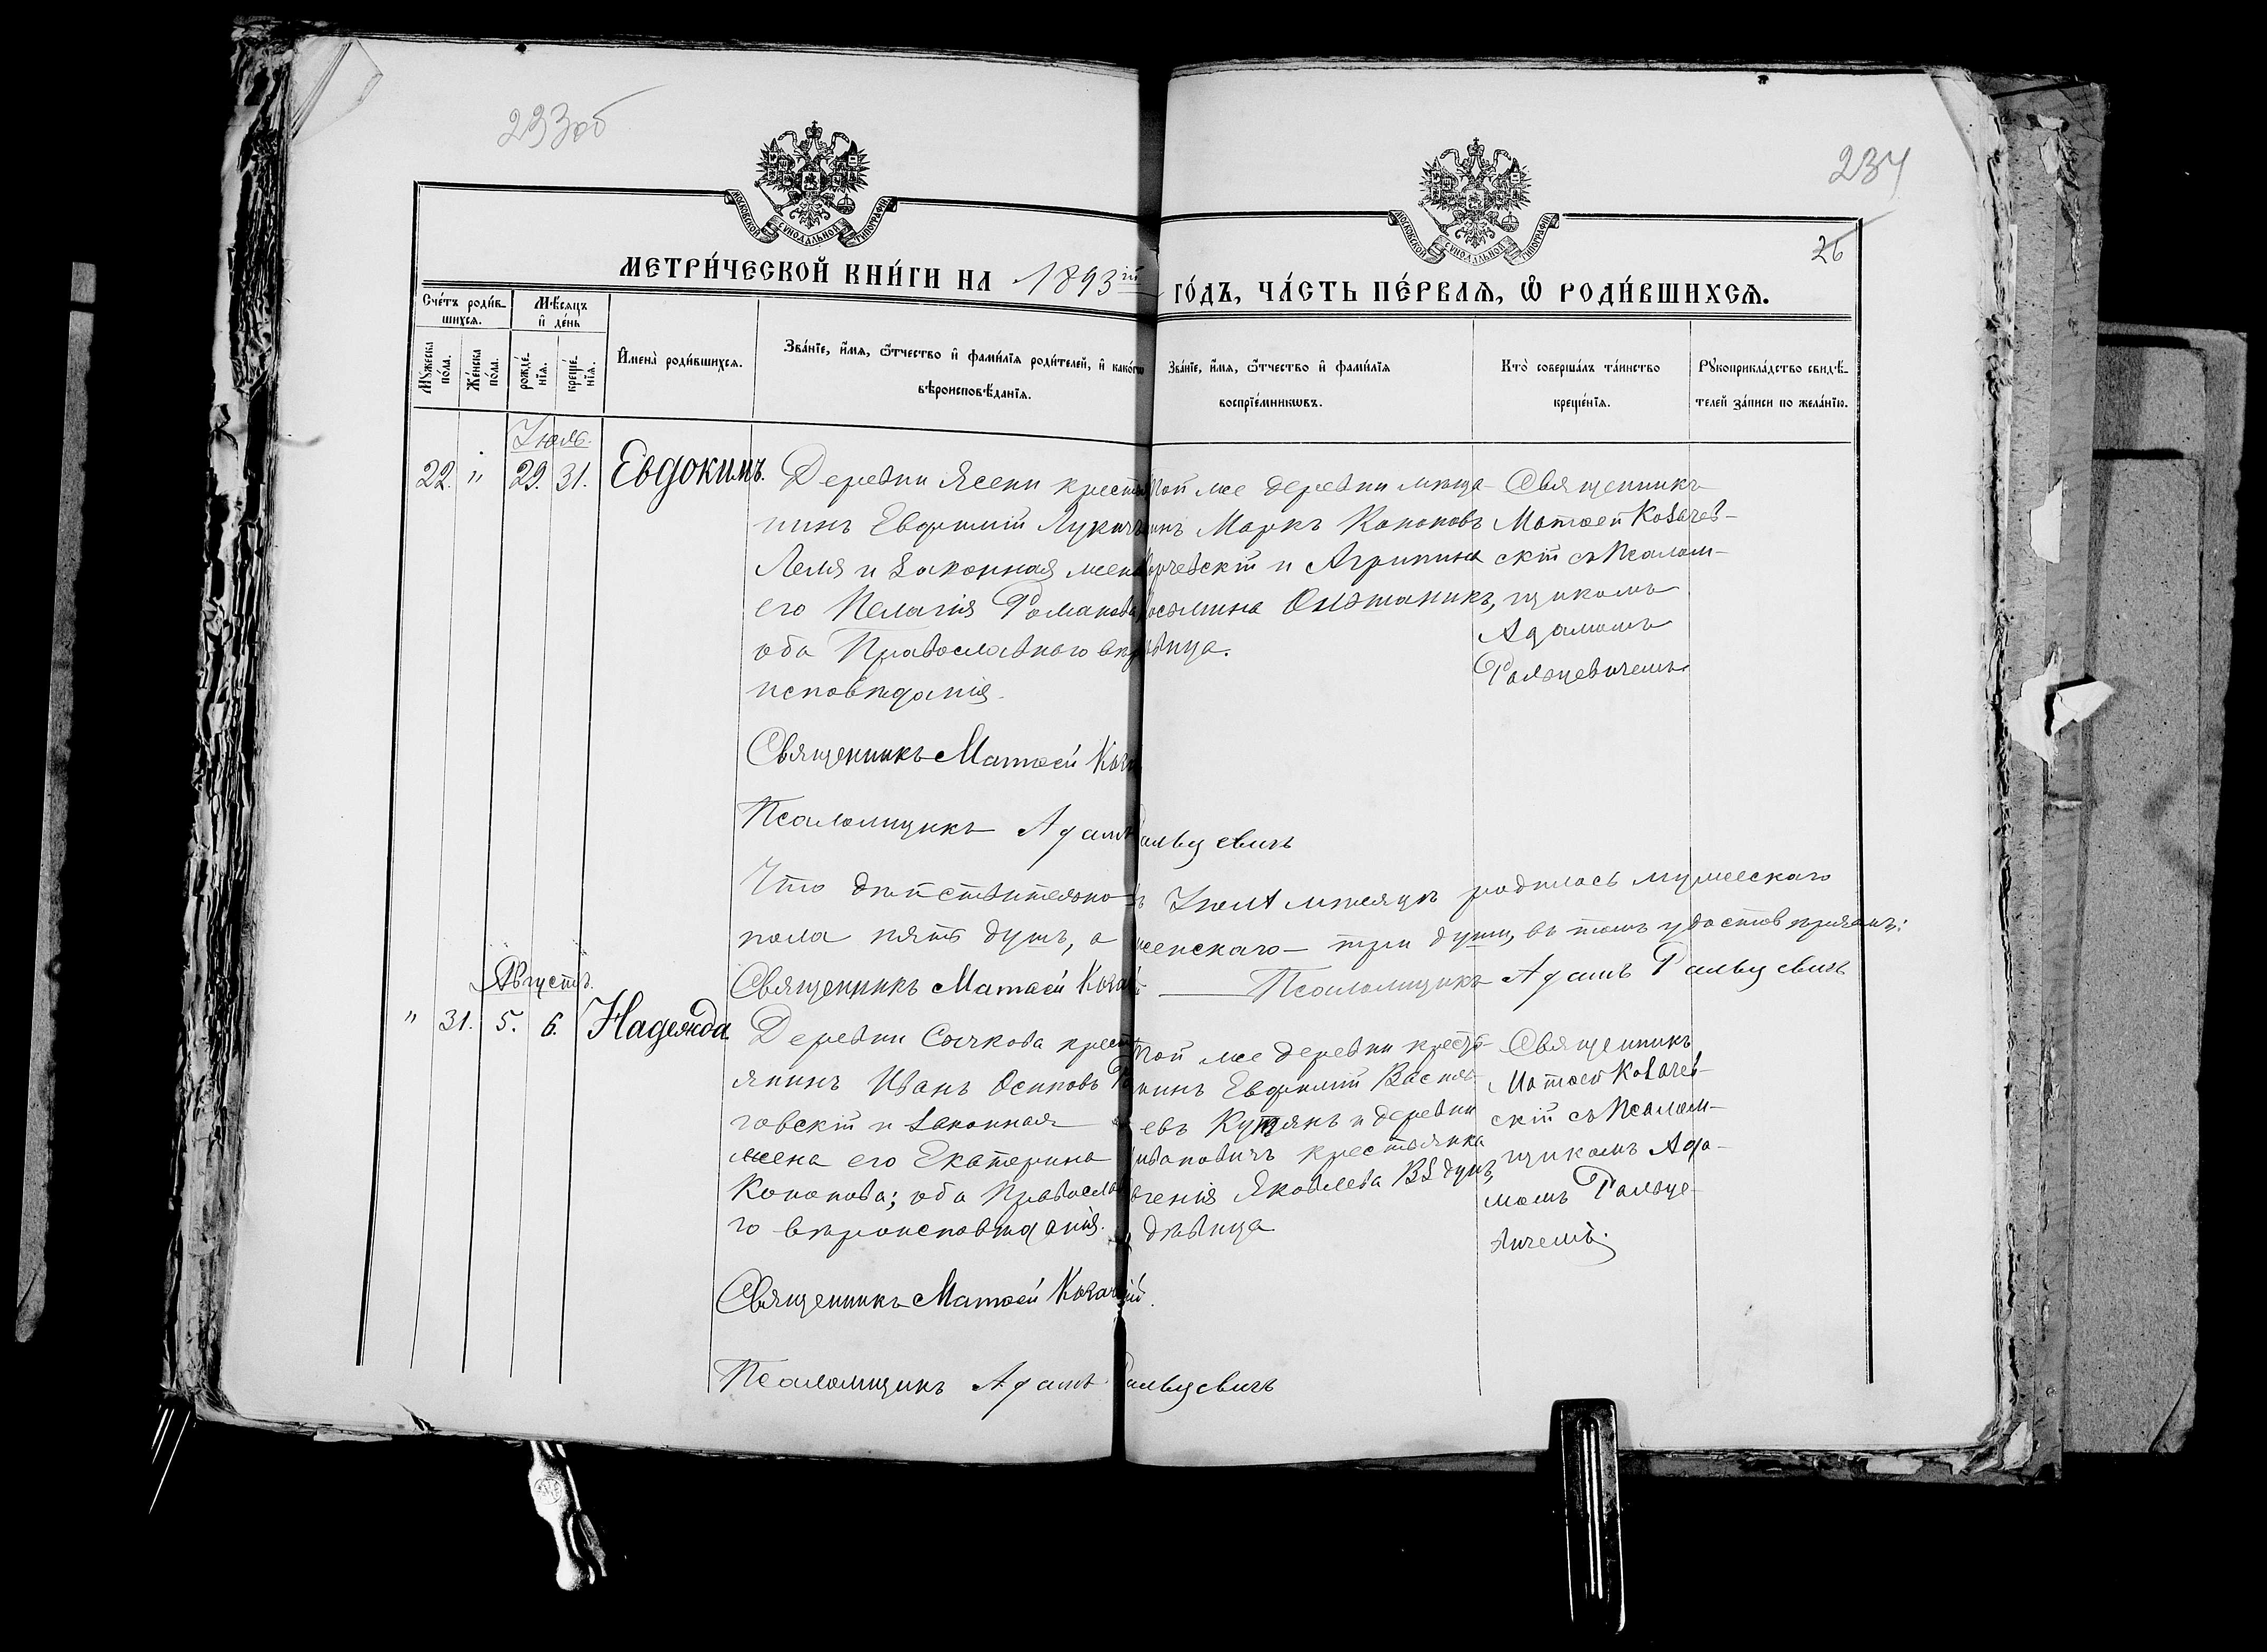 233об
234
26
МОСКОВСКОЙ СѴНОДАЛЬНОЙ ТИПОГРАФІИ
МОСКОВСКОЙ СѴНОДАЛЬНОЙ ТИПОГРАФІИ
МЕТРИ́ЧЕСКОЙ КНИ́ГИ НА 1893 ій
ГО́ДЪ, ЧА́СТЬ ПЕ́РВАѦ, Ѽ РОДИ́ВШИХСѦ.
Сче́тъ роди́в-
шихсѧ.
Мѣ́сѧцъ
и҆ де́нь
Мꙋ́жеска
по́ла.
Же́нска
по́ла.
рожде́-
нїѧ.
креще́-
нїѧ.
И҆мена̀ роди́вшихсѧ.
Зва́нїе, и҆́мѧ, ѻ҆́тчество и҆ фами́лїѧ роди́телей, и҆ како́гѡ
вѣроисповѣ́данїѧ.
Зва́нїе, и҆́мѧ, ѻ҆́тчество и҆ фами́лїѧ
воспрїе́мникѡвъ.
Кто̀ соверша́лъ та́инство
креще́нїѧ.
Рꙋкоприкла́дство свидѣ́-
телей за́писи по жела́нїю.
Іюль.
22. " 29. 31. Евдокимъ.
Деревни Ясени крестья
нинъ Евфимій Лукичъ
Леля и законная жена
его Пелагія Романова
оба Православнаго вѣро
исповѣданія.
Той же деревни мѣща-
Маркъ Кононовъ
и Агрипина
дѣвица.
Священникъ
Матѳей Козачев-
скій съ Псалом-
щикомъ
Адамомъ
Гальцевичемъ.
Священникъ Матѳей
Псаломщикъ Адамъ Гальцевичъ
Что дѣйствительно въ Іюлѣ мѣсяцѣ родилось мужескаго
пола пять душъ, а женскаго — три души, въ томъ удостовѣряемъ:
Священникъ Матѳей — Псаломщикъ Адамъ Гальцевичъ
Августъ.
" 31. 5. 6. Надежда.
Деревни Сычкова крест
янинъ Иванъ Осиповъ
говскій и законная
жена его Екатерина
Кононова; оба Православна
го вѣроисповѣданія.
Той же деревни кресть-
янинъ Евфимій Василь-
евъ и деревни
крестьянка
Яковлева
дѣвица
Священникъ
Матѳей Козачев-
скій съ Псалом-
щикомъ Ада-
момъ Гальце-
вичемъ.
Священникъ Матѳей
Псаломщикъ Адамъ Гальцевичъ